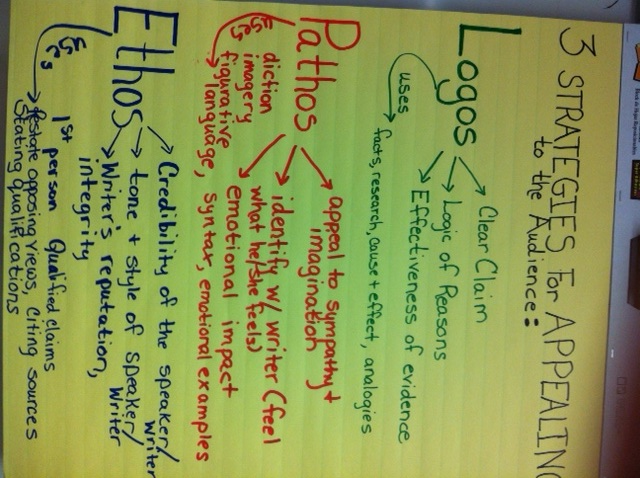 3 STRATEGIES For APPEALING
to the Audience:
Logos
Clear Claim
Logic of Reasons
Effectiveness of evidence
uses
facts, research, cause + effect, analogies
Pathos
appeal to sympathy +
imagination
identify w/ writer (feel
what he/she feels)
emotional impact
uses
diction
imagery
figurative
language, syntax, emotional examples
Ethos
Credibility of the speaker/
writer
tone + style of speaker/
Writer
Writer's reputation,
integrity
uses
1st person Qualified claims
restate opposing views, citing sources
Stating qualifications